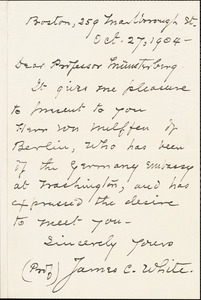 Boston, 259 Marlborough St.
Oct. 27, 1904 -
Dear Professor Münsterberg.
It gives me pleasure
to present to you
Herr von
Berlin, who has been
of the Germany Embassy
at Washington, and has
expressed the desire
to meet you -
Sincerely yours
(Prof) James C. White.